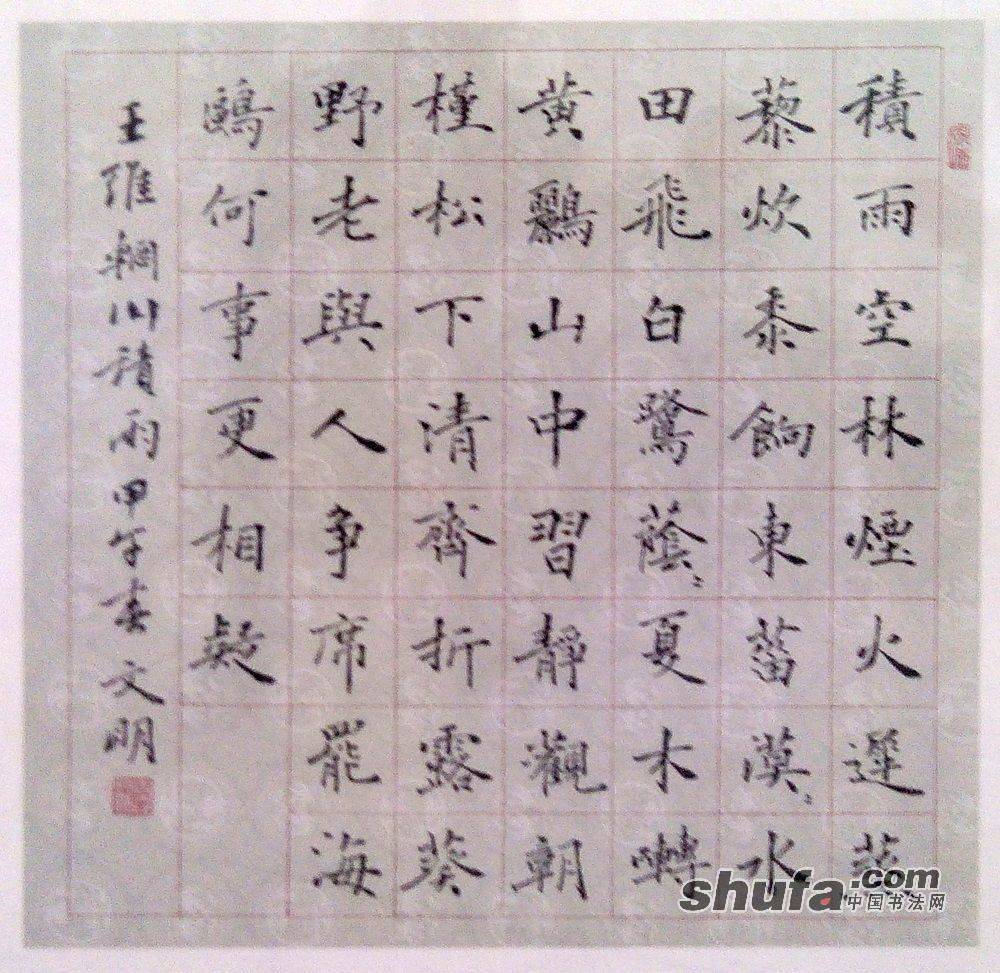 積雨空林煙火遲蒸
藜炊黍餉東菑漠〻水
田飛白鷺蔭〻夏木囀
黄鸝山中習靜觀朝
槿松下清齊折露葵
野老與人争席罷海
鷗何事更相疑
王維輞川積雨甲午春文明
shufa.com
中国书法网